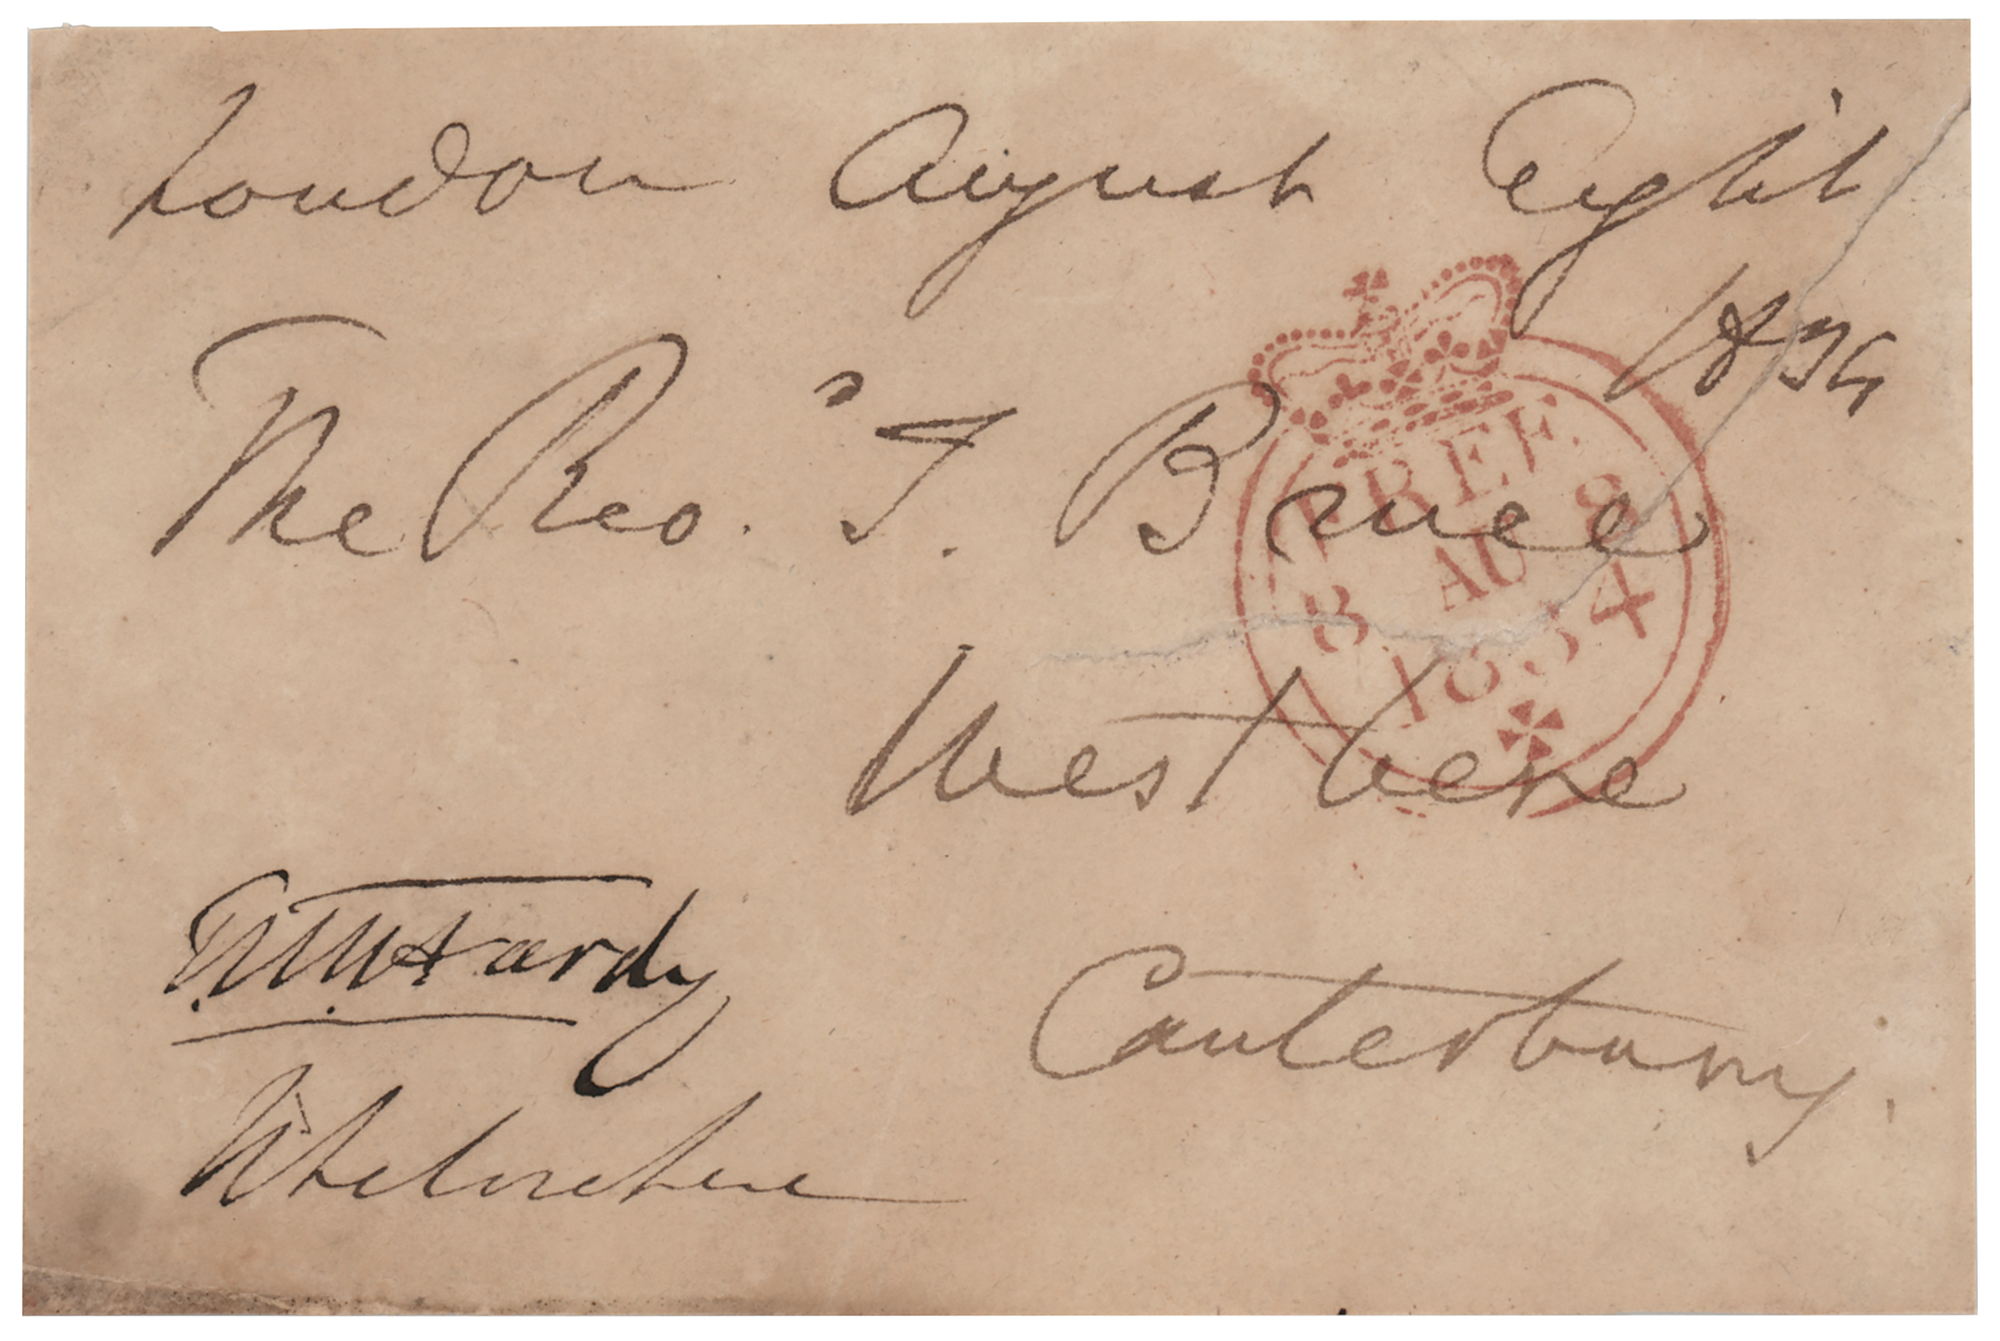 London August Eight
1834
The Revd. T. Bruce
Westbere
Canterbury.
T. M. Hardy
FREE
8 AU 8
1834